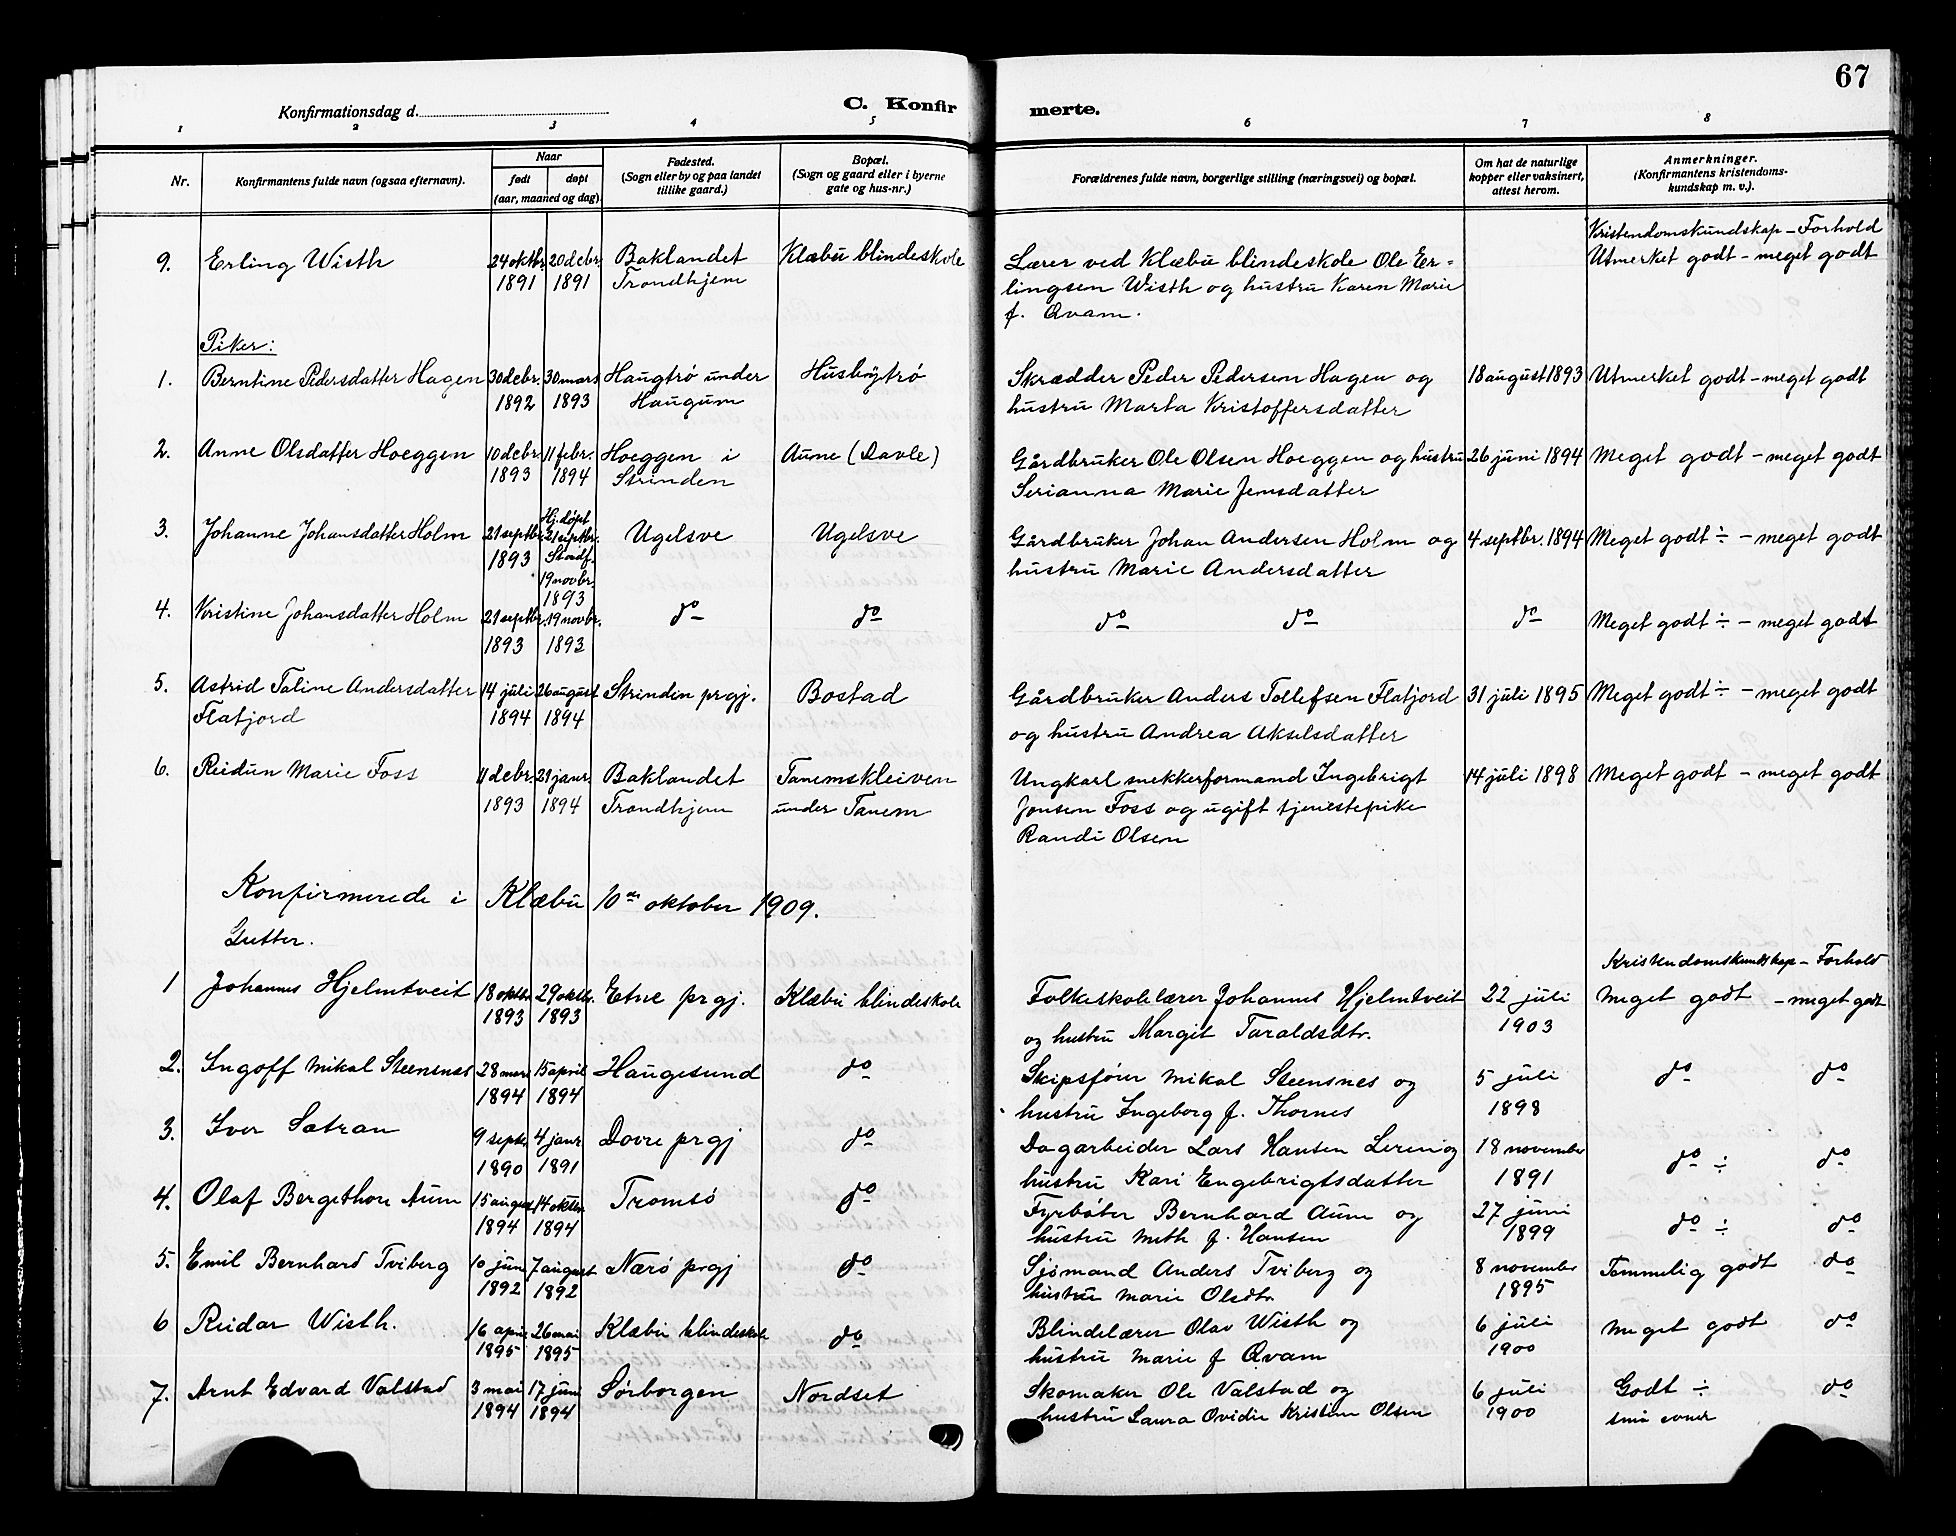 67
Konfirmationsdag d.
C. Konfir merte.
1 2 3 4 5 6 7 8
Nr.
Konfirmantens fulde navn (ogsaa efternavn).
Naar
født
døpt
(aar, maaned og dag).
Fødested.
(Sogn eller by og paa landet
tillike gaard.)
Bopæl.
(Sogn og gaard eller i byerne
gate og hus-nr.)
Forældrenes fulde navn, borgerlige stilling (næringsvei) og bopæl.
Om hat de naturlige
kopper eller vaksinert,
attest herom.
Anmerkninger.
(Konfirmantens kristendoms-
kundskap m. v.).
Kristendomskundskap – Forhold
9. Erling Wisth 24 oktbr. 20 debr. Baklandet Klæbu blindeskole Lærer ved Klæbu blindeskole Ole Er= Utmerket godt – meget godt
1891 1891 Trondhjem lingsen Wisth og hustru Karen Marie
f. Qvam.
Piker:
1. Berntine Pedersdatter Hagen 30 debr. 30 mars Haugtrø under Husbytrø Skrædder Peder Pedersen Hagen og 18 august 1893 Utmerket godt – meget godt
1892 1893 Haugum hustru Marta Kristoffersdatter
2. Anne Olsdatter Hoeggen 10 debr. 11 febr. Hoeggen i Aune (Davle) Gårdbruker Ole Olsen Hoeggen og hustru 26 juni 1894 Meget godt – meget godt
1893 1894 Strinden Serianna Marie Jensdatter
Hj. døpt
3. Johanne Johansdatter Holm 21 septbr. 21 septbr. Ugelsve Ugelsve Gårdbruker Johan Andersen Holm og 4 septbr. 1894 Meget godt ÷ – meget godt
1893 Stadf. hustru Marie Andersdatter
19 novbr.
1893
4. Kristine Johansdatter Holm 21 septbr. 19 novbr. do do do do do Meget godt ÷ – meget godt
1893 1893
5. Astrid Taline Andersdatter 14 juli 26 august Strinden prgj. Bostad Gårdbruker Anders Tollefsen Flatjord 31 juli 1895 Meget godt ÷ – meget godt
Flatjord 1894 1894 og hustru Andrea Akselsdatter
6. Reidun Marie Foss 11 debr. 21 janr. Baklandet Tanemskleiven Ungkarl snekkerformand Ingebrigt 14 juli 1898 Meget godt – meget godt
1893 1894 Trondhjem under Tanem Jonsen Foss og ugift tjenestepike
Randi Olsen
Konfirmerede i Klæbu 10de oktober 1909.
Gutter.
Kristendomskundskap – Forhold
1 Johannes Hjelmtveit 18 oktbr. 29 oktbr. Etne prgj. Klæbu blindeskole Folkeskolelærer Johannes Hjelmtveit 22 juli Meget godt – meget godt
1893 1893 og hustru Margit Taraldsdtr. 1903
2. Ingoff Mikal Steensnes 28 mars 15 april Haugesund do Skipsfører Mikal Steensnes og 5 juli do do
1894 1894 hustru Ingeborg f. Thornes 1898
3. Iver Sætran 9 septr. 4 janr. Dovre prgj do Dagarbeider Lars Hansen Leren og 18 november do ÷ do
1890 1891 hustru Kari Engebrigtsdatter 1891
4. Olaf Bergethon Aune 15 august 14 oktbr. Tromsö do Fyrbøter Bernhard Aune og 27 juni do ÷ do
1894 1894 hustru Meth f. Hansen 1899
5. Emil Bernhard Tviberg 10 juni 7 august Nærö prgj do Sjömand Anders Tviberg og 8 november Temmelig godt do
1892 1892 hustru Marie Olsdtr 1895
6 Reidar Wisth. 16 april 26 mai Klæbu blindeskole do Blindelærer Olav Wisth og 6 juli Meget godt do
1895 1895 hustru Marie f Qvam 1900
7. Arnt Edvard Valstad 3 mai 17 juni Sørborgen Nordset Skomaker Ole Valstad og 6 juli Godt ÷ do
1894 1894 hustru Laura Ovidie Kristine Olsen 1900 små evner